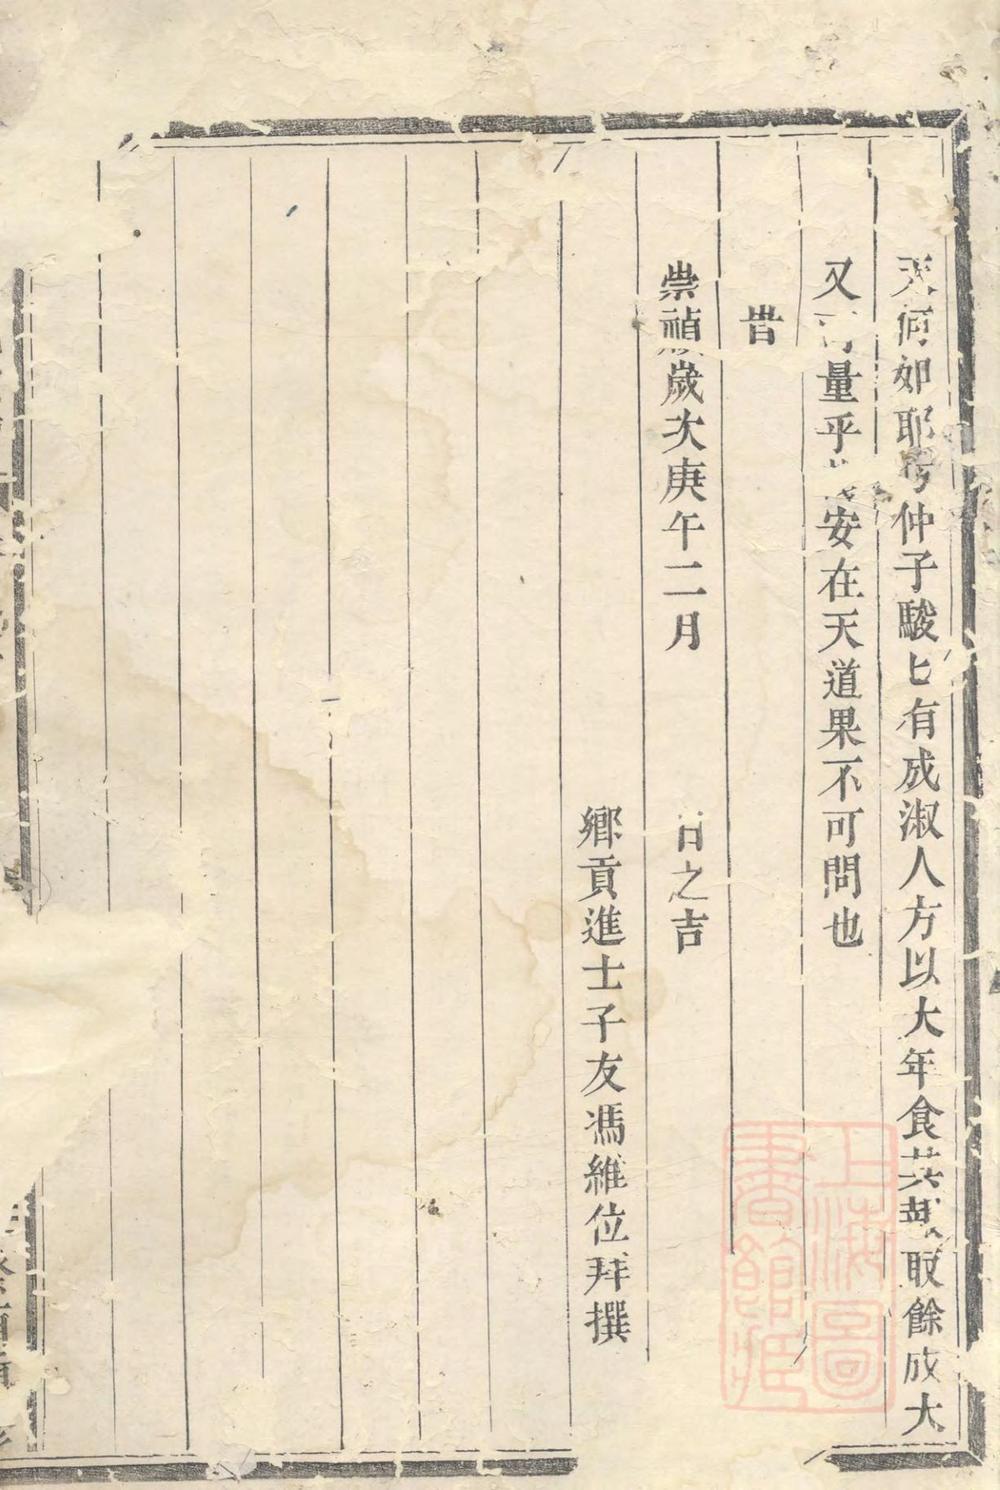 天何如耶今仲子駿已有成淑人方以大年食共報取餘成大
又可量乎安在天道果不可問也
昔
崇禎歲次庚午二月 日之吉
鄉貢進士子友馮維位拜撰
上海圖書館藏